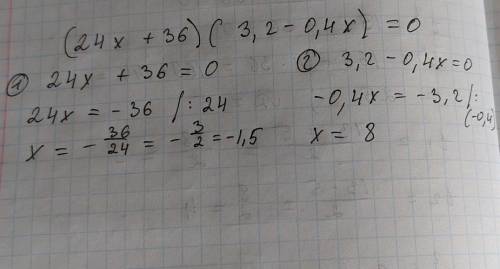 (24x + 36)(3,2 - 0,4x) = 0
① 24x + 36 = 0
24x = - 36 /: 24
x = - 36/24 = - 3/2 = -1,5
② 3,2 - 0,4x = 0
-0,4x = -3,2 /: (-0,4)
x = 8